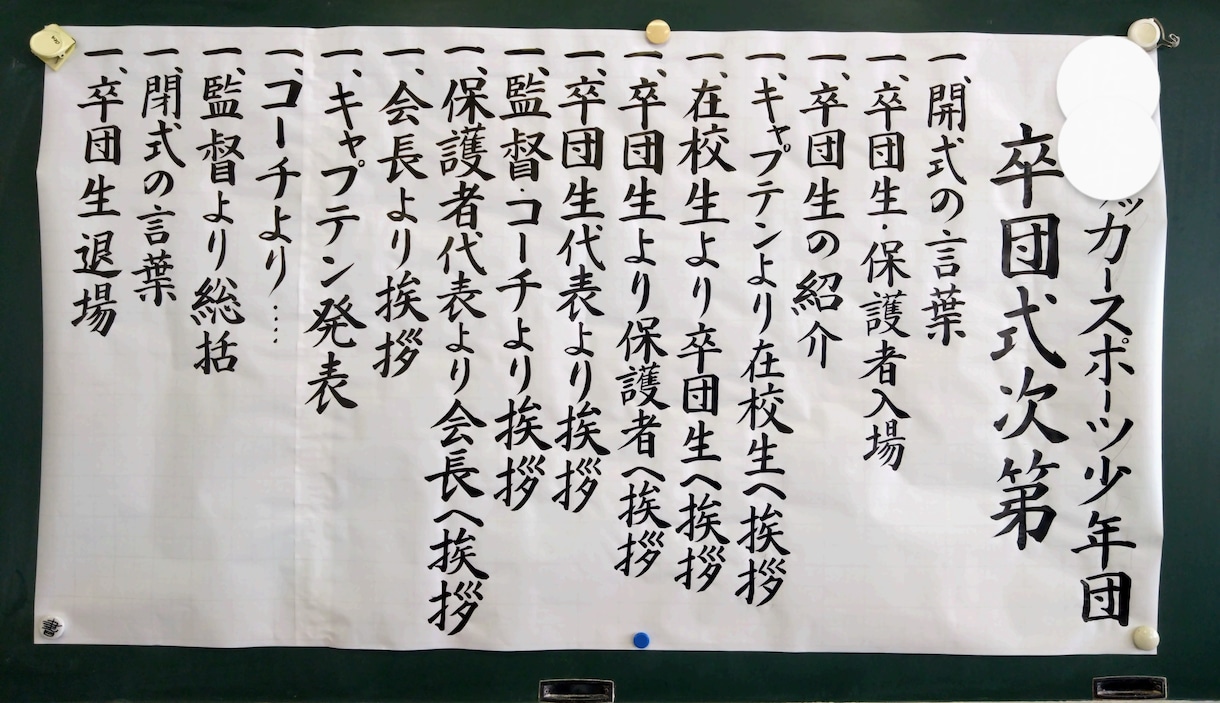 ッカースポーツ少年団
卒団式次第
一、開式の言葉
一、卒団生・保護者入場
一、卒団生の紹介
一、キャプテンより在校生へ挨拶
一、在校生より卒団生へ挨拶
一、卒団生より保護者へ挨拶
一、卒団生代表より挨拶
一、監督・コーチより挨拶
一、保護者代表より会長へ挨拶
一、会長より挨拶
一、キャプテン発表
一、コーチより‥‥
一、監督より総括
一、閉式の言葉
一、卒団生退場
書